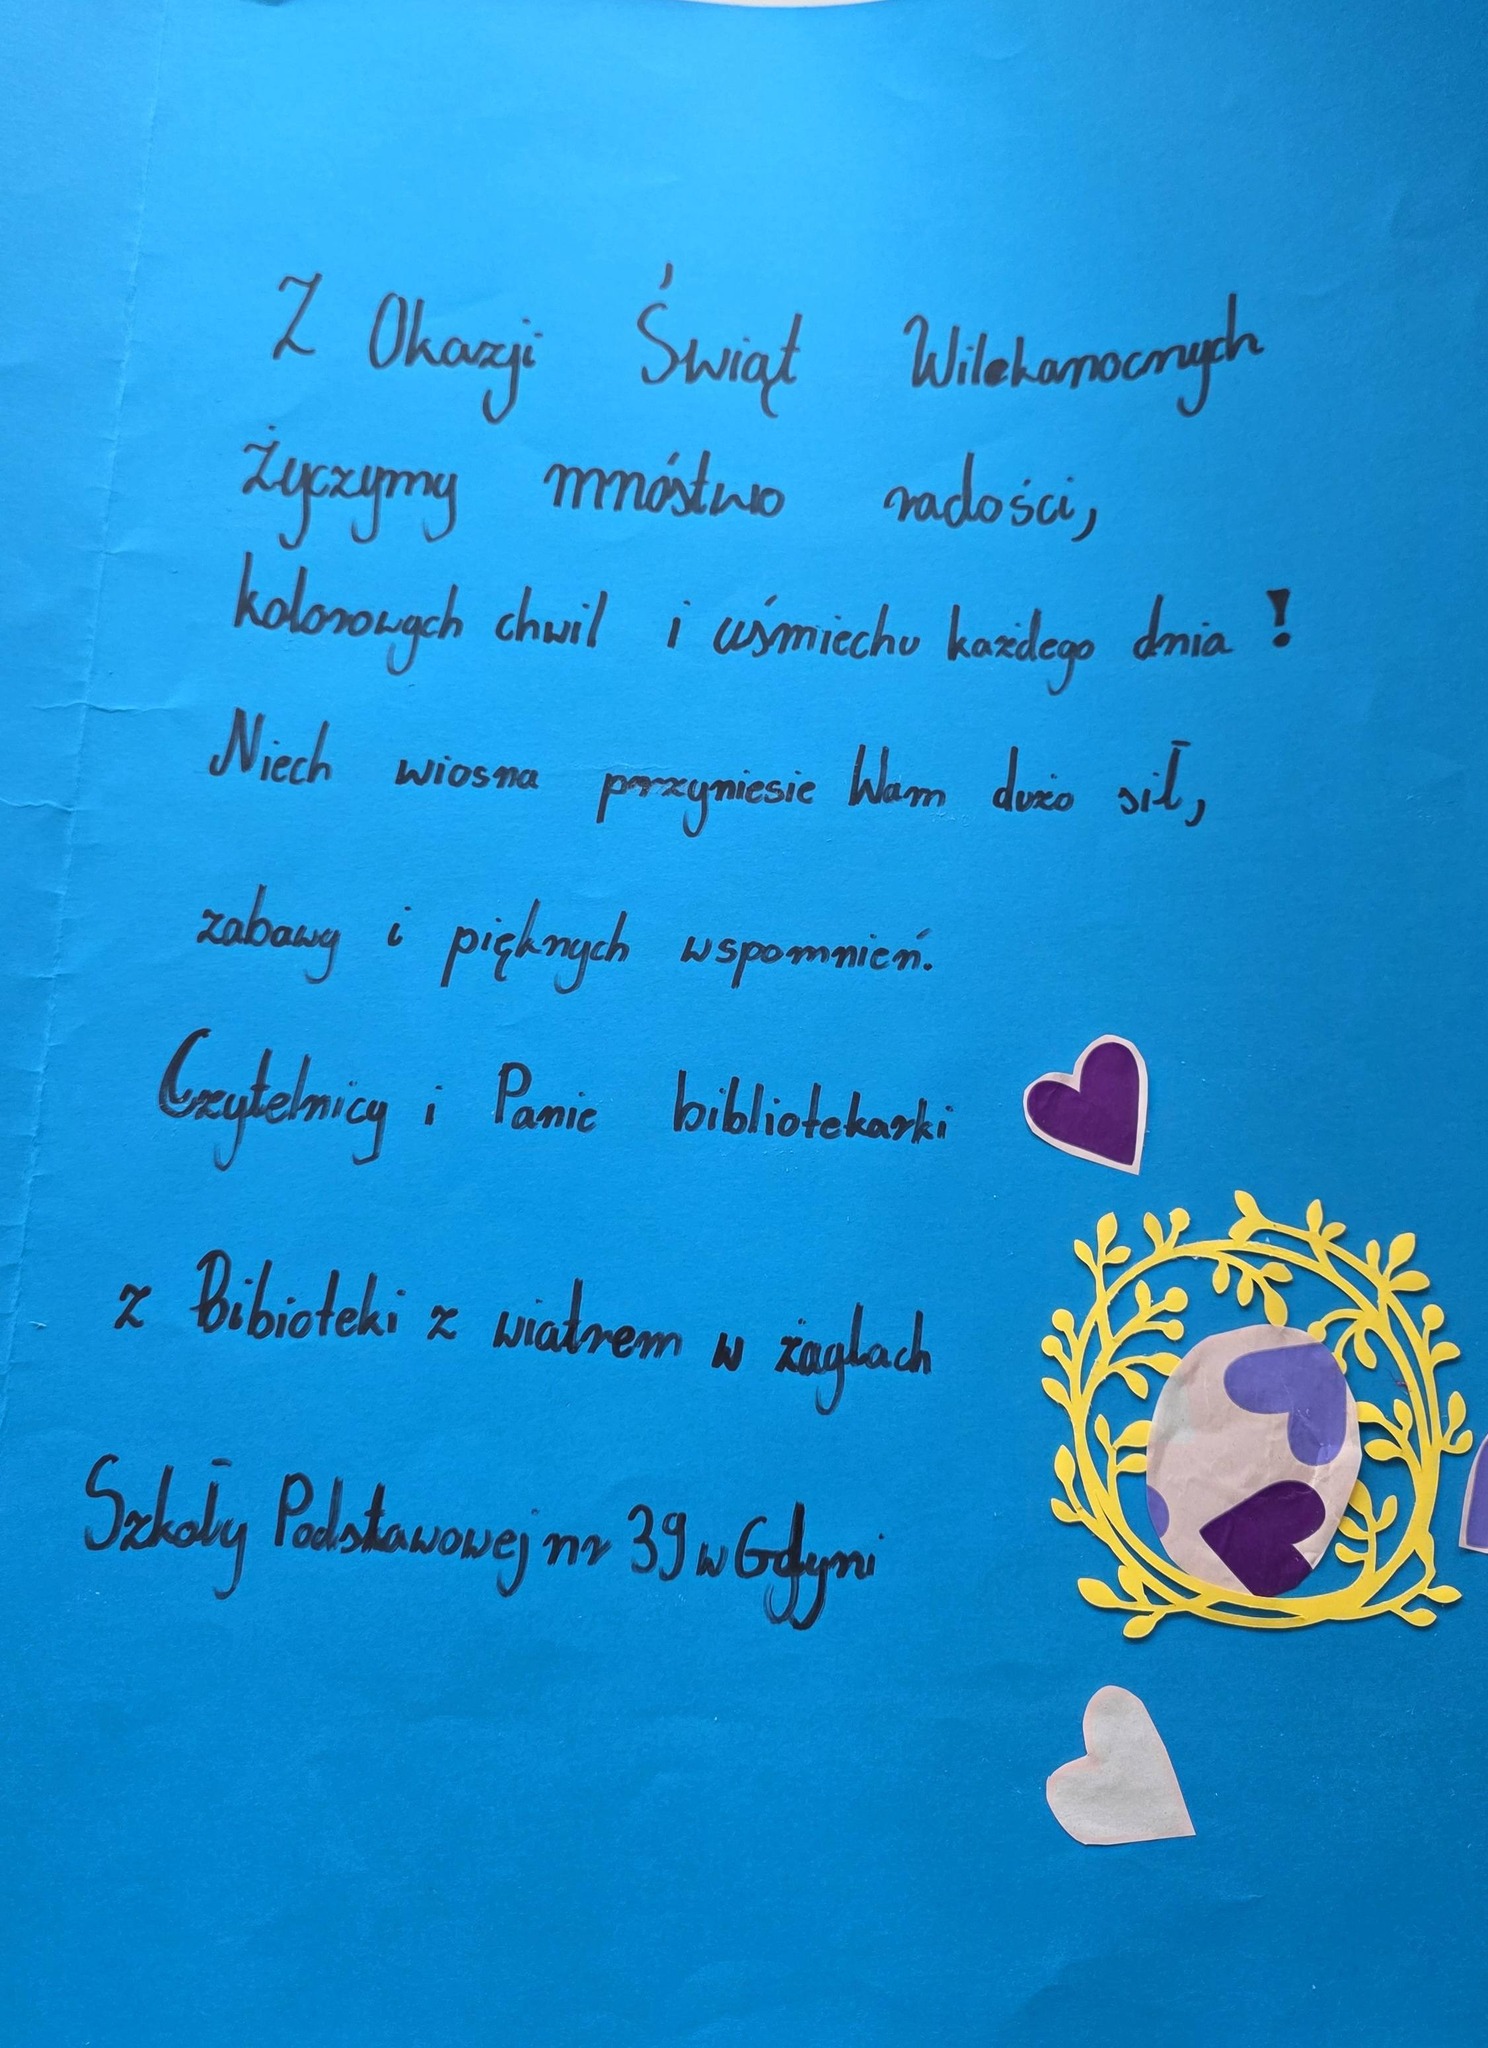 Z Okazji Świąt Wilekanocnych
życzymy mnóstwo radości,
kolorowych chwil i uśmiechu każdego dnia!
Niech wiosna przyniesie Wam dużo sił,
zabawy i pięknych wspomnień.
Czytelnicy i Panie bibliotekarki
z Bibioteki z wiatrem w żaglach
Szkoły Podstawowej nr 39 w Gdyni